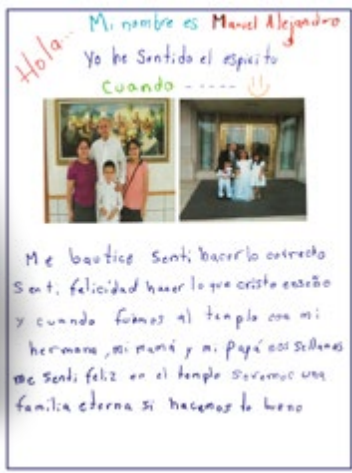 Hola...
Mi nombre es Manuel Alejandro
Yo he Sentido el espiritu
Cuando -----
Me bautice Senti hacer lo correcto
Senti felicidad hacer lo que cristo enseño
y cuando fuimos al templo con mi
hermana, mi mamá y mi papá nos sellamos
me senti feliz en el templo Seremos una
familia eterna si hacemos lo bueno